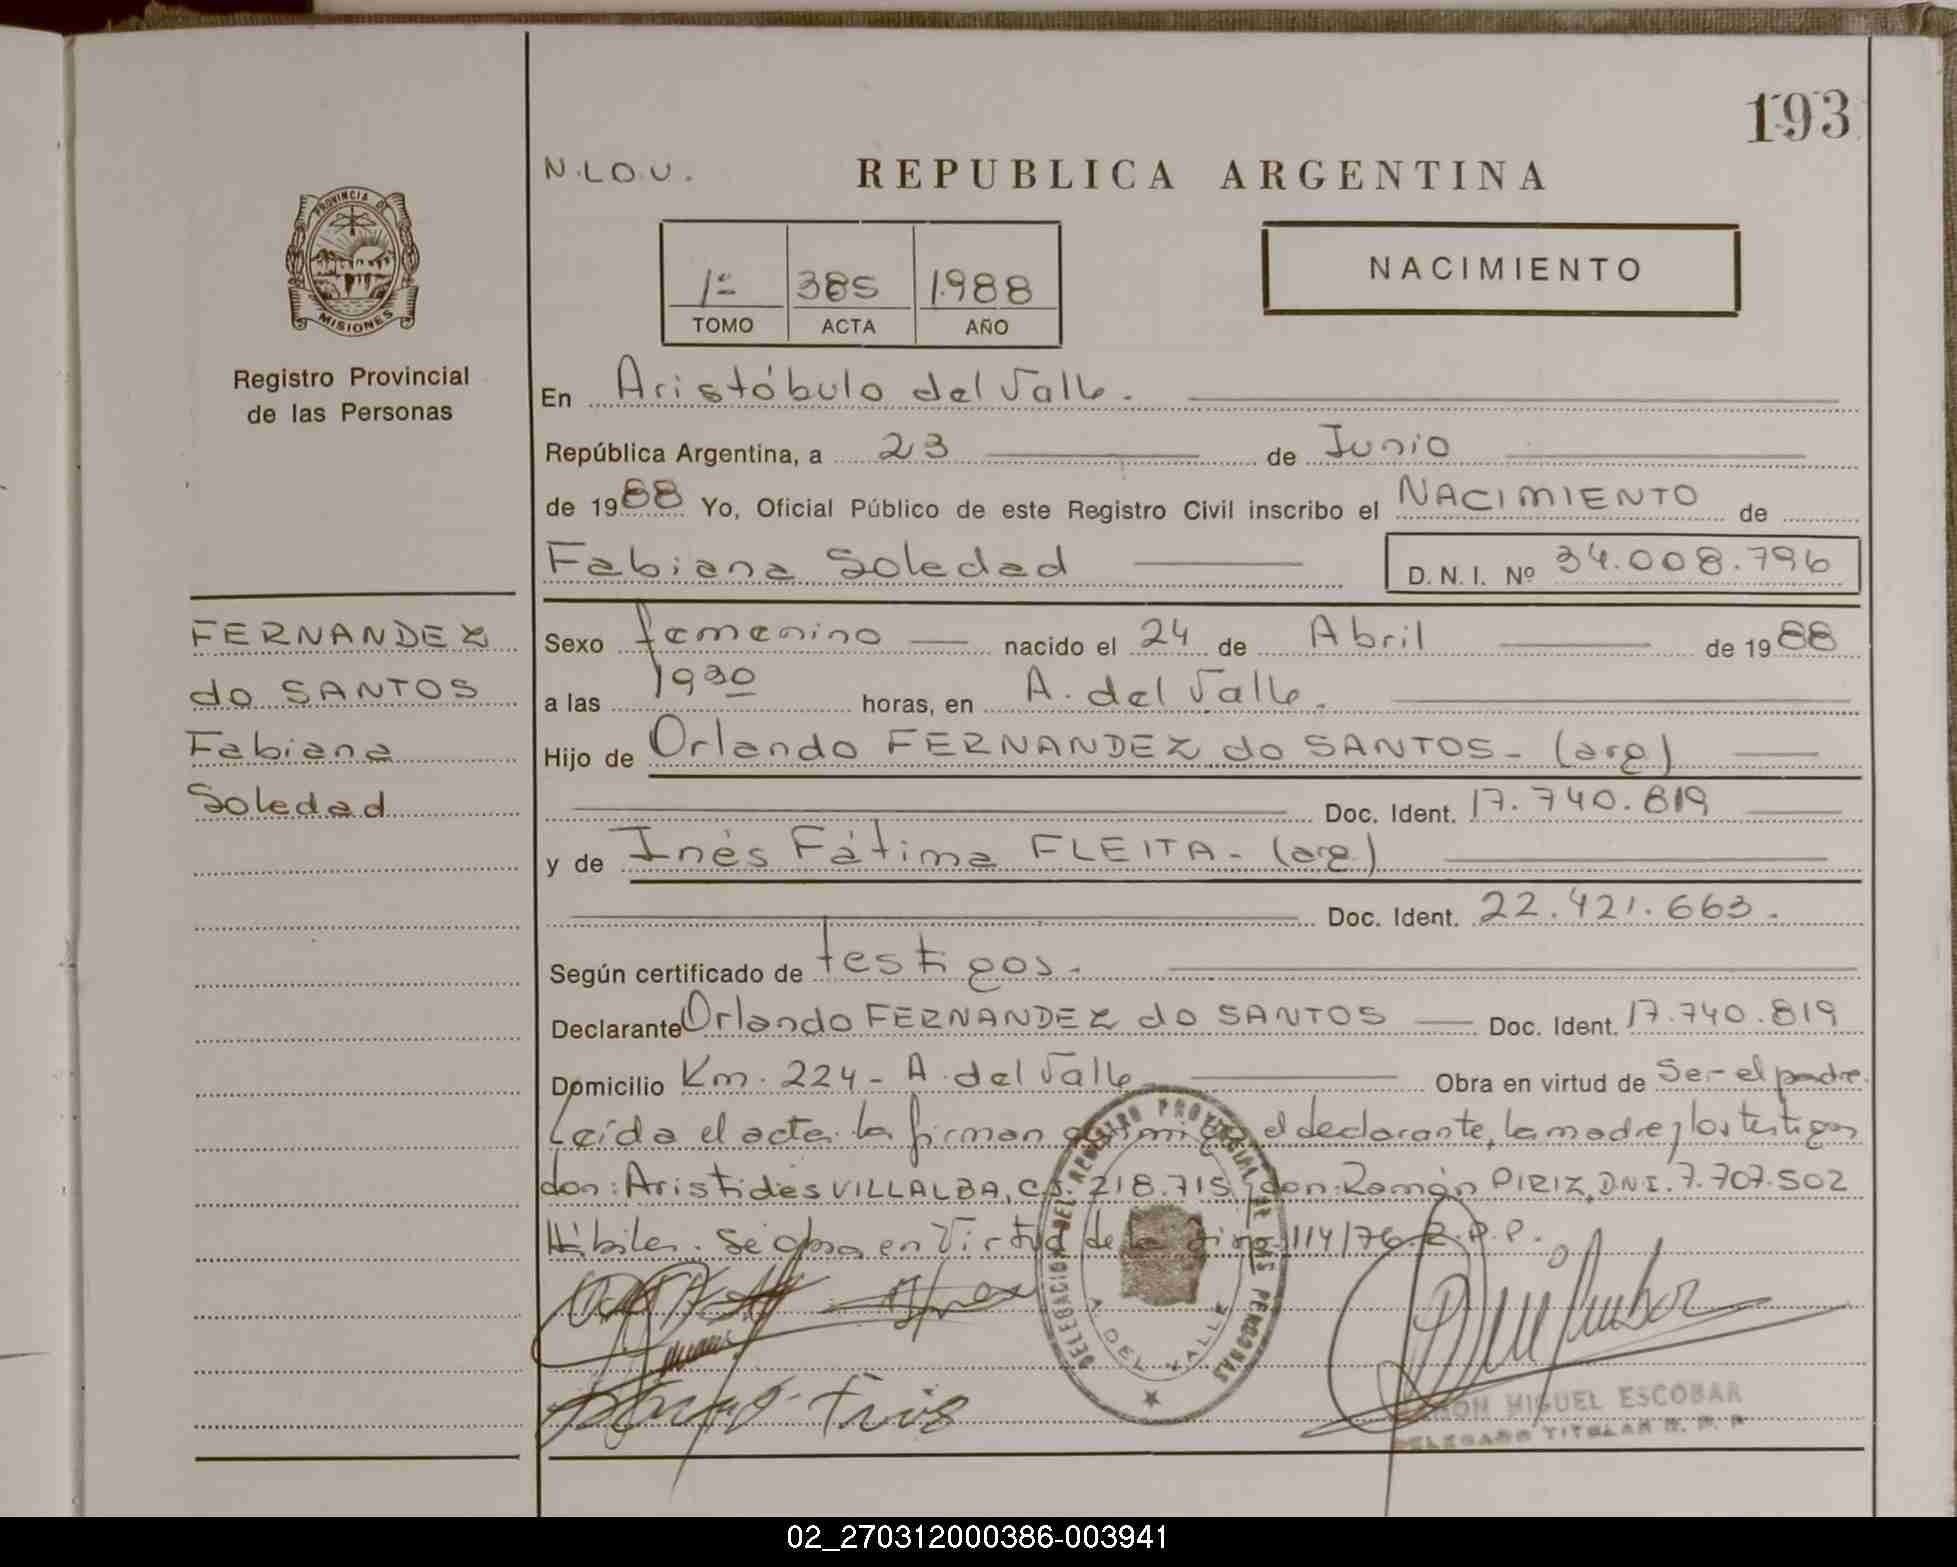 193
N.LO.U.
REPUBLICA ARGENTINA
PROVINCIA DE
MISIONES
Registro Provincial
de las Personas
1º 385 1988
TOMO ACTA AÑO
NACIMIENTO
En Aristóbulo del Valle.
República Argentina, a 23 de Junio
de 1988 Yo, Oficial Público de este Registro Civil inscribo el NACIMIENTO de
Fabiana Soledad D. N. I. Nº 34.008.796
FERNANDEZ
do SANTOS
Fabiana
Soledad
Sexo femenino nacido el 24 de Abril de 1988
a las 1930 horas, en A. del Valle.
Hijo de Orlando FERNANDEZ do SANTOS- (arg)
Doc. Ident. 17.740.819
y de Inés Fátima FLEITA- (arg)
Doc. Ident. 22.421.663.
Según certificado de testigos.
Declarante Orlando FERNANDEZ do SANTOS Doc. Ident. 17.740.819
Domicilio Km. 224- A. del Valle Obra en virtud de Ser el padre.
Leída el acta la firman el declarante, la madre y los testigos
don: Aristides VILLALBA, C.I. 218.715 y don Román PIRIZ, D.N.I. 7.707.502
Hábiles. Se obra en Virtud de la 114/76 R.P.P.
DELEGACION DEL REGISTRO PROVINCIAL DE LAS PERSONAS
A. DEL VALLE
MIGUEL ESCOBAR
DELEGADO TITULAR R. P. P.
02_270312000386-003941